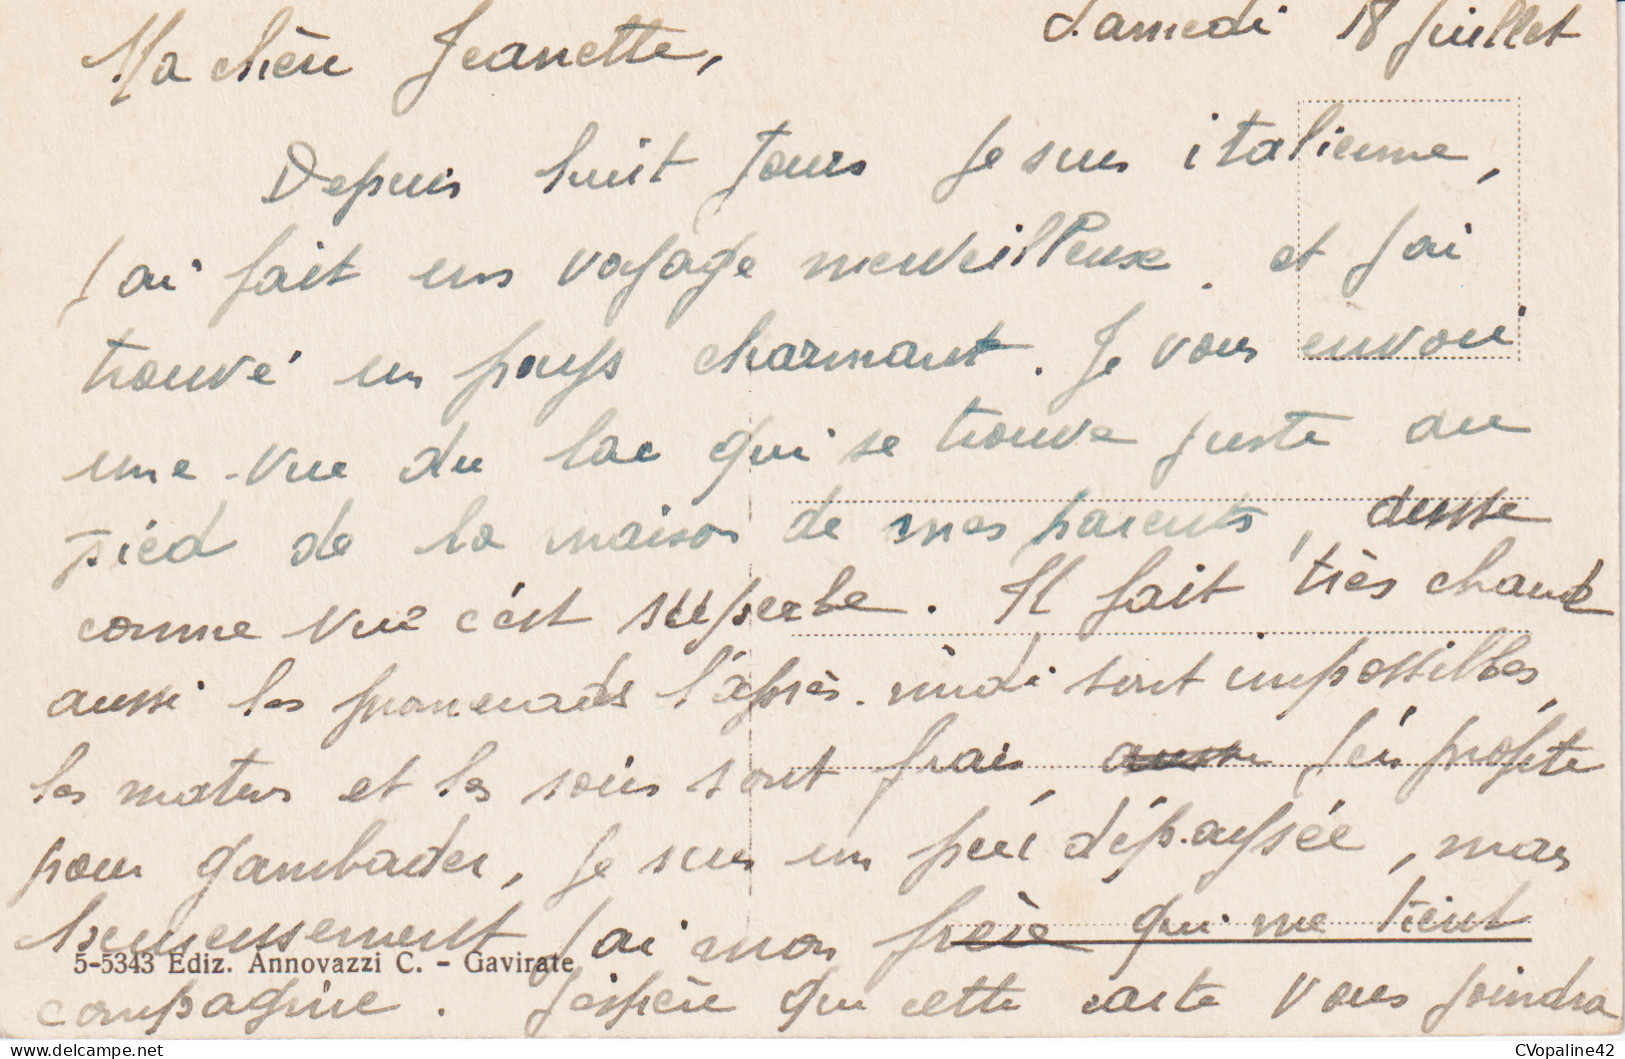 Samedi 18 Juillet
Ma chère Jeanette,
Depuis huit Jours Je suis italienne,
J'ai fait un voyage merveilleux. et J'ai
trouvé un pays charmant. Je vous envoie
une vue du lac qui se trouve juste au
pied de la maison de mes parents,
comme vue c'est superbe. Il fait très chaud
aussi les promenades l'après-midi sont impossibles,
les matins et les soirs sont frais, J'en profite
pour gambader, Je suis un peu dépaysée, mais
heureusement J'ai mon frère qui me tient
5-5343 Ediz. Annovazzi C. - Gavirate
compagnie. J'espère que cette carte vous joindra
CVopaline42